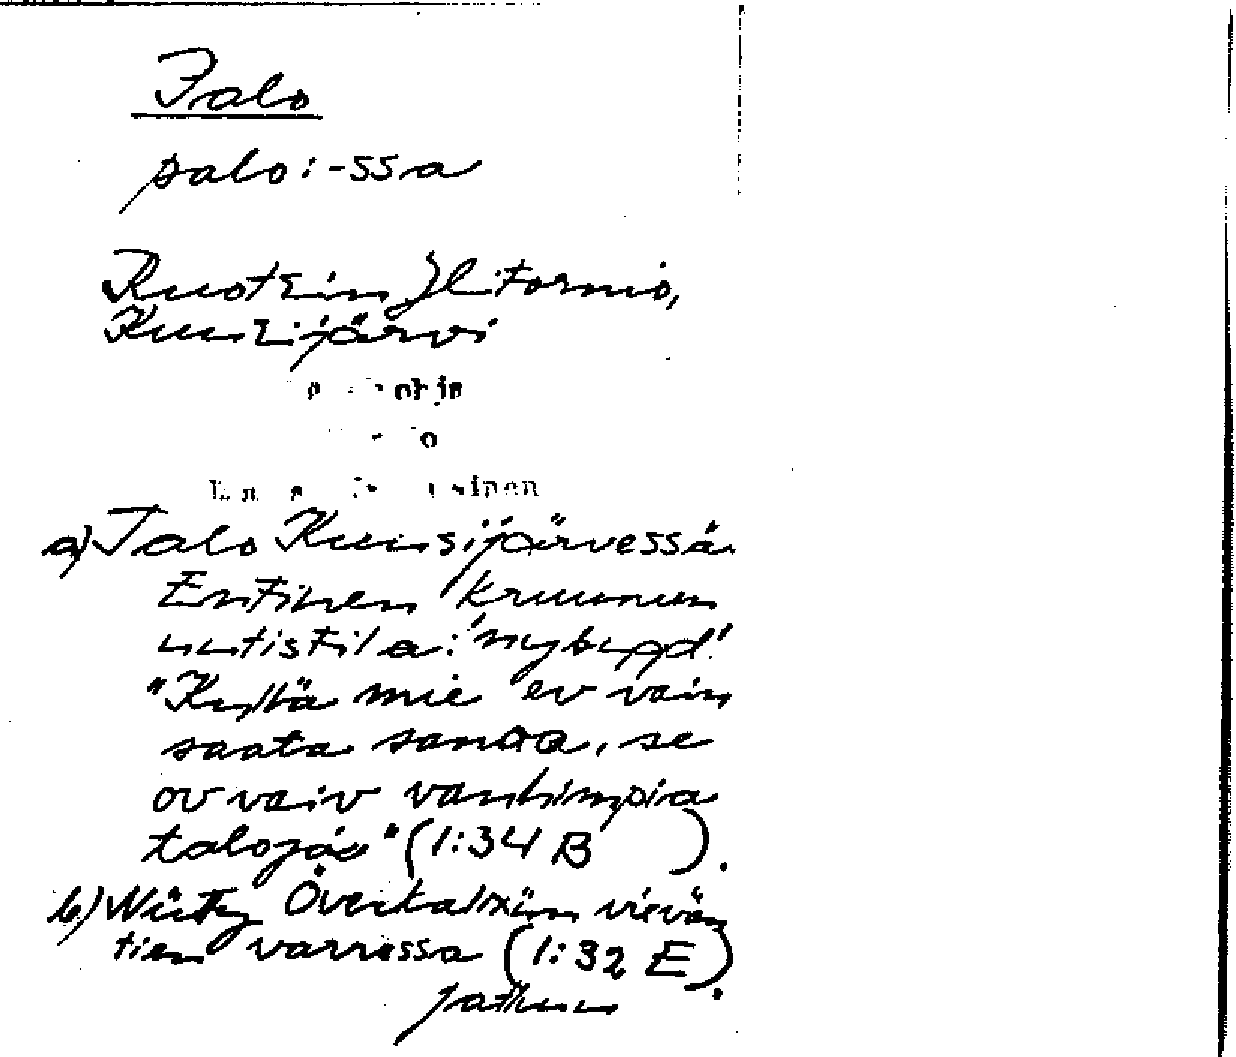 Palo
palo: -ssa
Ruotsin Ylitornio,
Kuusijärvi
a) Talo Kuusijärvessä.
Entinen kruunun
uutistila: 'nybygd'.
"Kyllä mie ev vain
saata sanoa, se
ov vaiv vanhimpia
taloja" (1:34 B ).
b) Niitty Överkalixiin vievän
tien varressa (1:32 E).
jatkuu